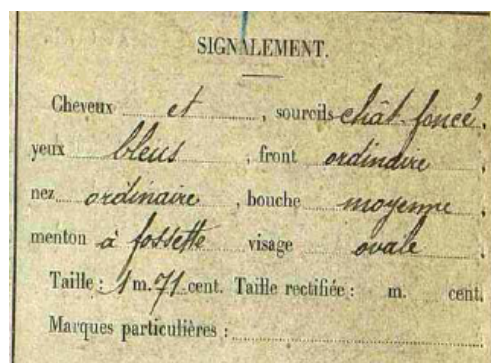 SIGNALEMENT.
Cheveux et, sourcils chât-foncé,
yeux bleus, front ordinaire,
nez ordinaire, bouche moyenne,
menton à fossette visage ovale,
Taille : 1 m. 71 cent. Taille rectifiée : m. cent.
Marques particulières :